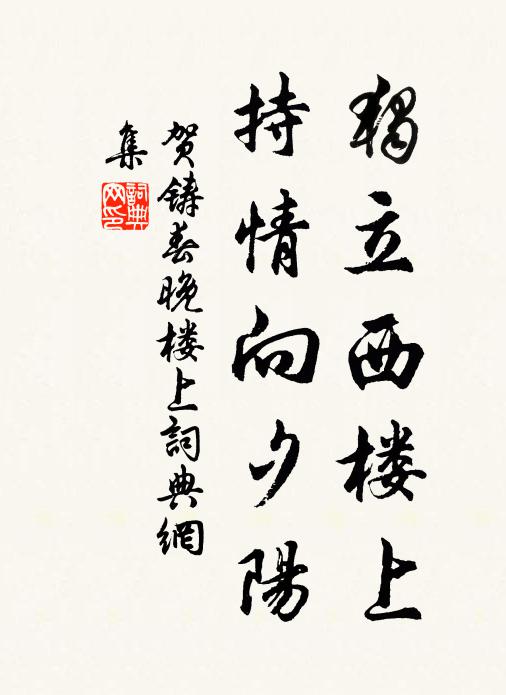 獨立西楼上
持情向夕陽
贺鑄春晚楼上詞典網
集
詞典
网印